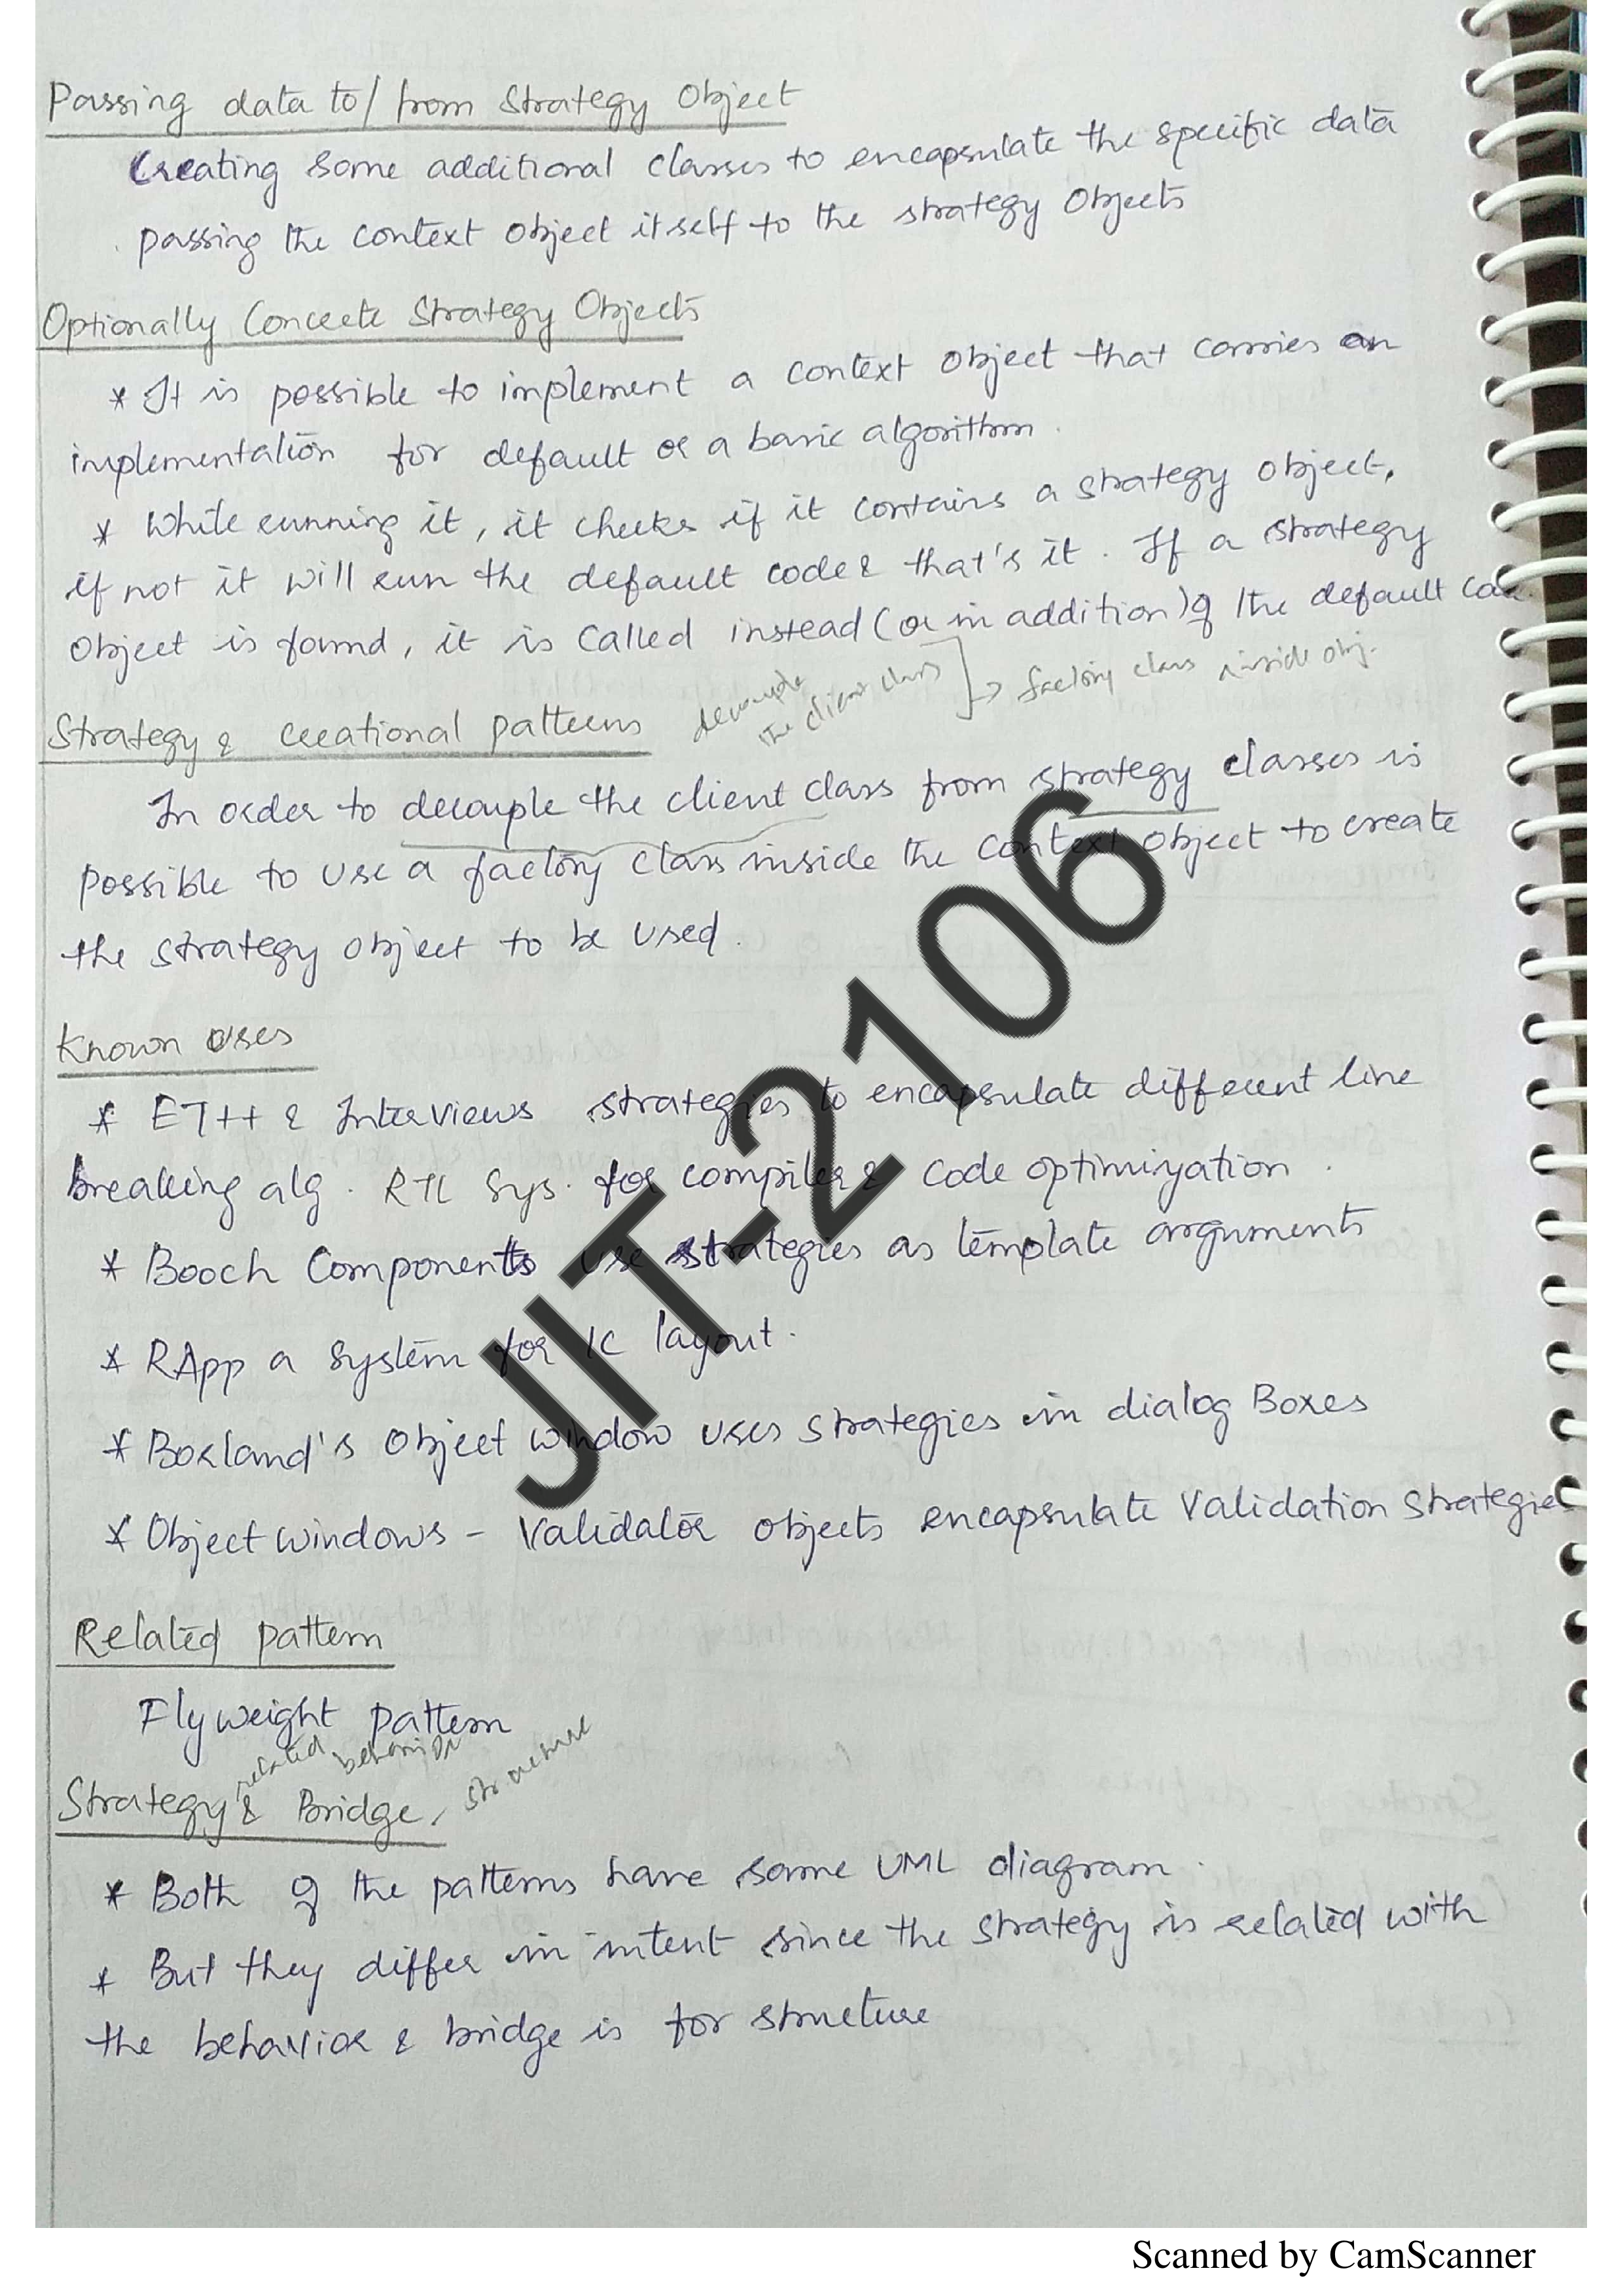 Passing data to/from Strategy Object
Creating some additional classes to encapsulate the specific data
passing the context object itself to the strategy Objects
Optionally Concrete Strategy Objects
* It is possible to implement a context object that carries an
implementation for default or a basic algorithm.
* While running it, it checks if it contains a strategy object,
if not it will run the default code & that's it. If a strategy
Object is found, it is called instead (or in addition) of the default code.
decouple
the client class
→ factory class inside obj.
Strategy & Creational patterns
In order to decouple the client class from strategy classes is
possible to use a factory class inside the context object to create
the strategy object to be used.
Known Uses
* ET++ & InterViews strategies to encapsulate different line
breaking alg. RTL Sys. for compiler & code optimization.
* Booch Components use strategies as template arguments
* RApp a system for IC layout.
* Borland's Object window uses strategies in dialog Boxes
* Object windows - Validator objects encapsulate Validation Strategies
Related pattern
Flyweight pattern
related behavior structure
Strategy & Bridge
* Both of the patterns have same UML diagram.
* But they differ in intent since the strategy is related with
the behavior & bridge is for structure
JIT-2106
Scanned by CamScanner